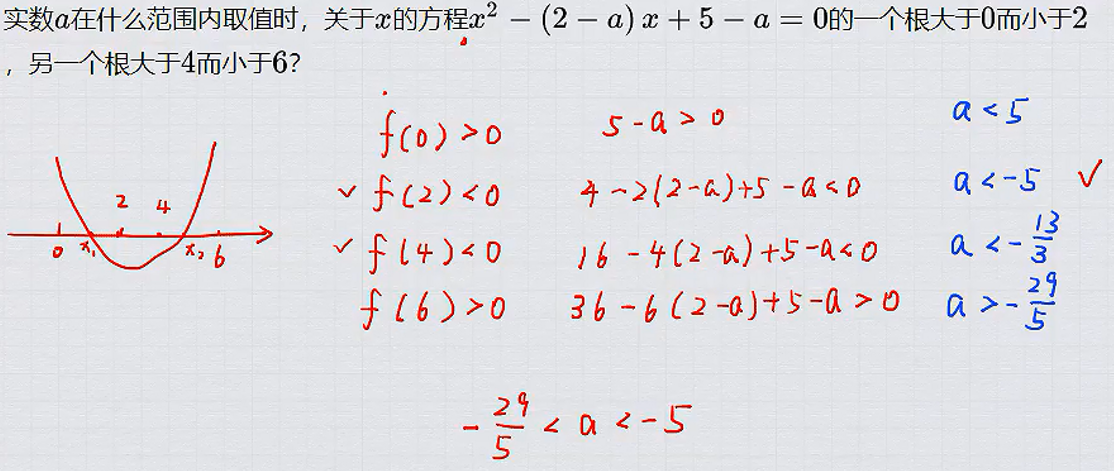 实数a在什么范围内取值时，关于x的方程x² − (2 − a) x + 5 − a = 0的一个根大于0而小于2
，另一个根大于4而小于6？
f(0) > 0 5 - a > 0 a < 5
✓ f(2) < 0 4 - 2(2-a) + 5 - a < 0 a < -5 ✓
2 4
0 x₁ x₂ 6
✓ f(4) < 0 16 - 4(2-a) + 5 - a < 0 a < -13/3
f(6) > 0 36 - 6(2-a) + 5 - a > 0 a > -29/5
-29/5 < a < -5